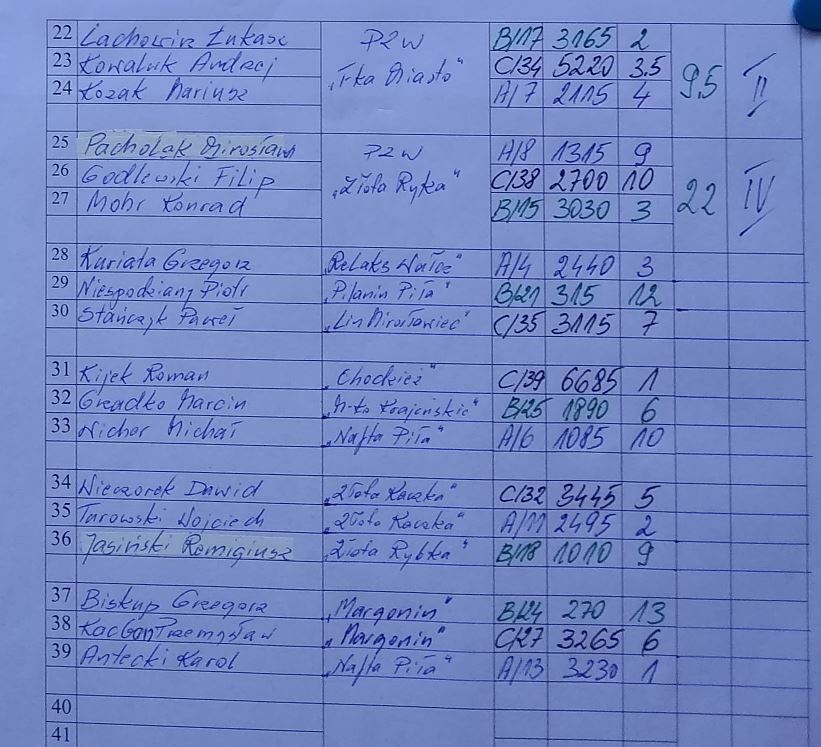 22 Lachowicz Łukasz PZW B/17 3165 2
23 Kowaluk Andrzej „Trka Miasto" C/34 5220 3,5 9,5 II
24 Kozak Mariusz A/7 2115 4
25 Pacholak Mirosław PZW A/8 1315 9
26 Godlewski Filip „Złota Rybka" C/38 2700 10 22 IV
27 Mohr Konrad B/15 3030 3
28 Kuriata Grzegorz „Relaks Wałcz" A/4 2440 3
29 Niespodziany Piotr „Pilanin Piła" B/21 315 12
30 Stańczyk Paweł „Lin Mirosławiec" C/35 3115 7
31 Kijek Roman „Chodzież" C/39 6685 1
32 Gradko Marcin „M-ko Krajeńskie" B/25 1890 6
33 Wicher Michał „Nafta Piła" A/6 1085 10
34 Wieczorek Dawid „Złota Kaczka" C/32 3445 5
35 Turowski Wojciech „Złota Kaczka" A/11 2495 2
36 Jasiński Remigiusz „Złota Rybka" B/18 1010 9
37 Biskup Grzegorz „Margonin" B/24 270 13
38 Przemysław „Margonin" C/27 3265 6
39 Antecki Karol „Nafta Piła" A/13 3230 1
40
41